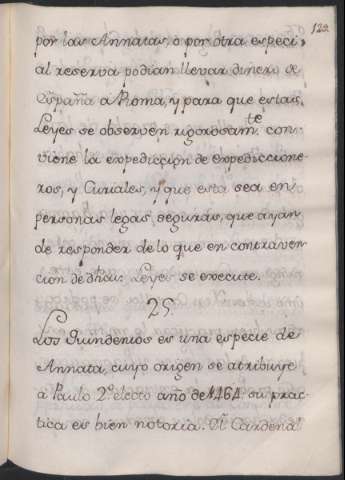 129.
por las Annatas, o por otra especi-
al reserva podian llevar dinero de
España a Roma, y para que estas
Leyes se observen rigorosamte. con-
viene la expediccion de Expediccione-
ros, y Curiales, y que esta sea en
personas legas, seguras, que ayan
de responder de lo que en contraven-
cion de dhas. Leyes se execute.
25.
Los Quindenios es una especie de
Annata, cuyo origen se atribuye
a Paulo 2º electo año de 1464. su prac-
tica es bien notoria. El Cardenal